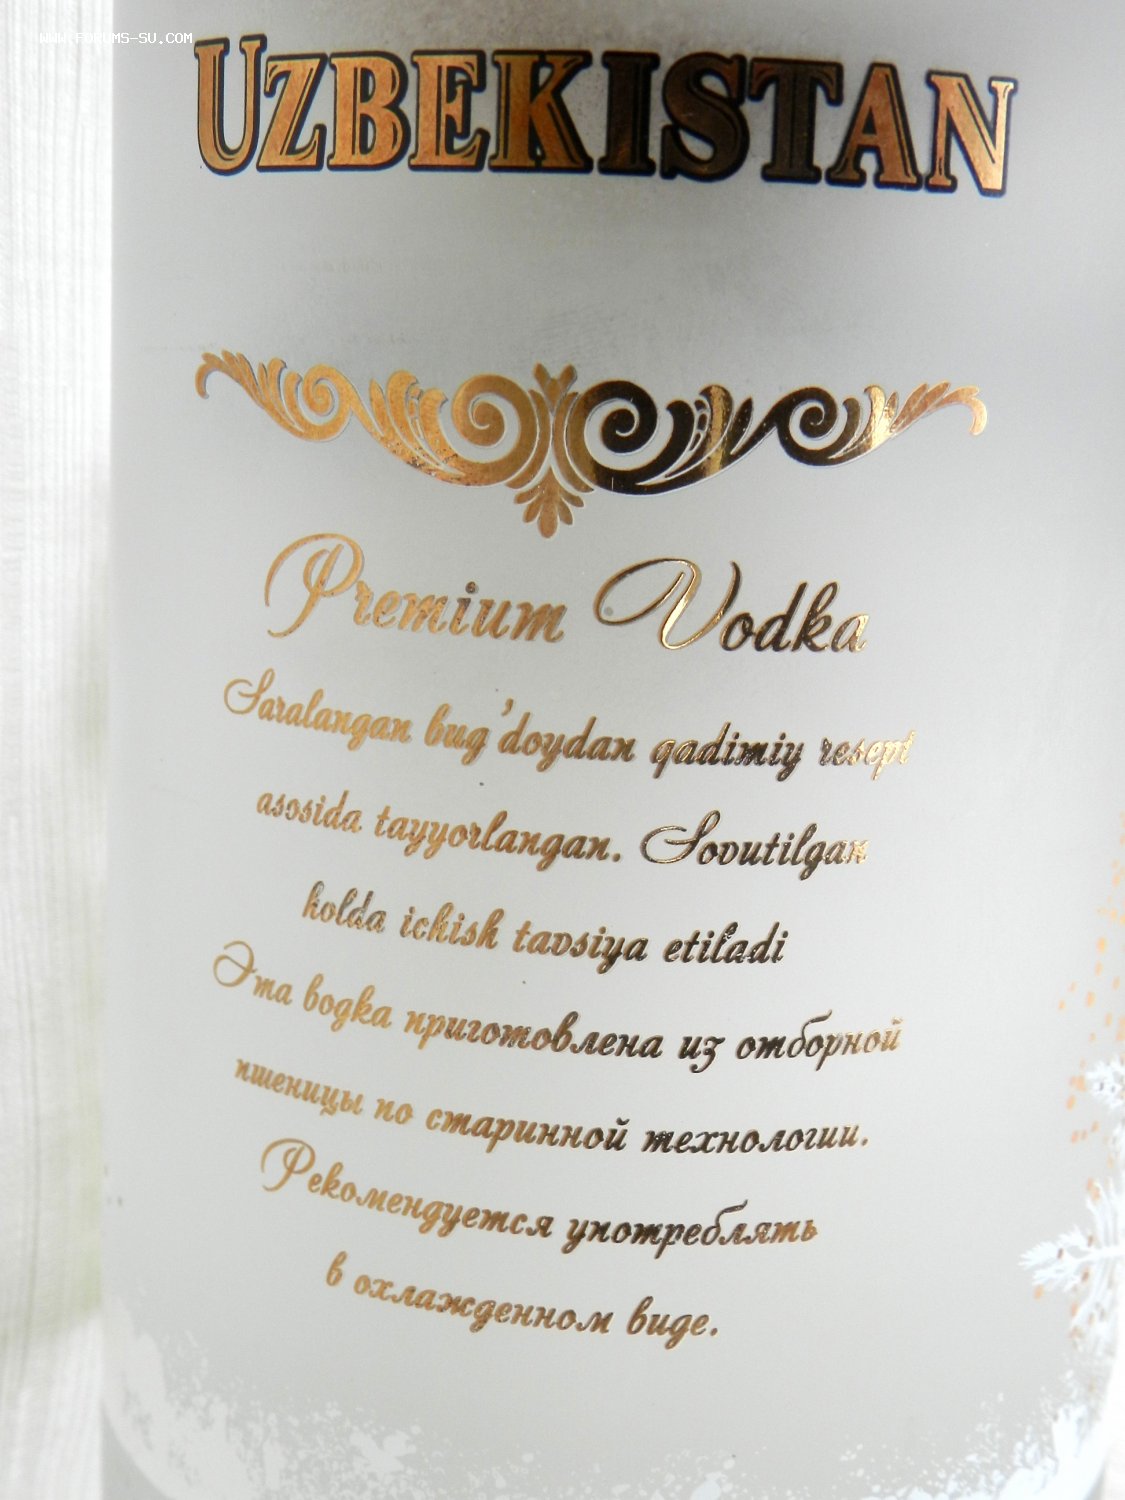 WWW.FORUMS-SU.COM
UZBEKISTAN
Premium Vodka
Saralangan bug'doydan qadimiy resept
asosida tayyorlangan. Sovutilgan
holda ichish tavsiya etiladi
Эта водка приготовлена из отборной
пшеницы по старинной технологии.
Рекомендуется употреблять
в охлажденном виде.